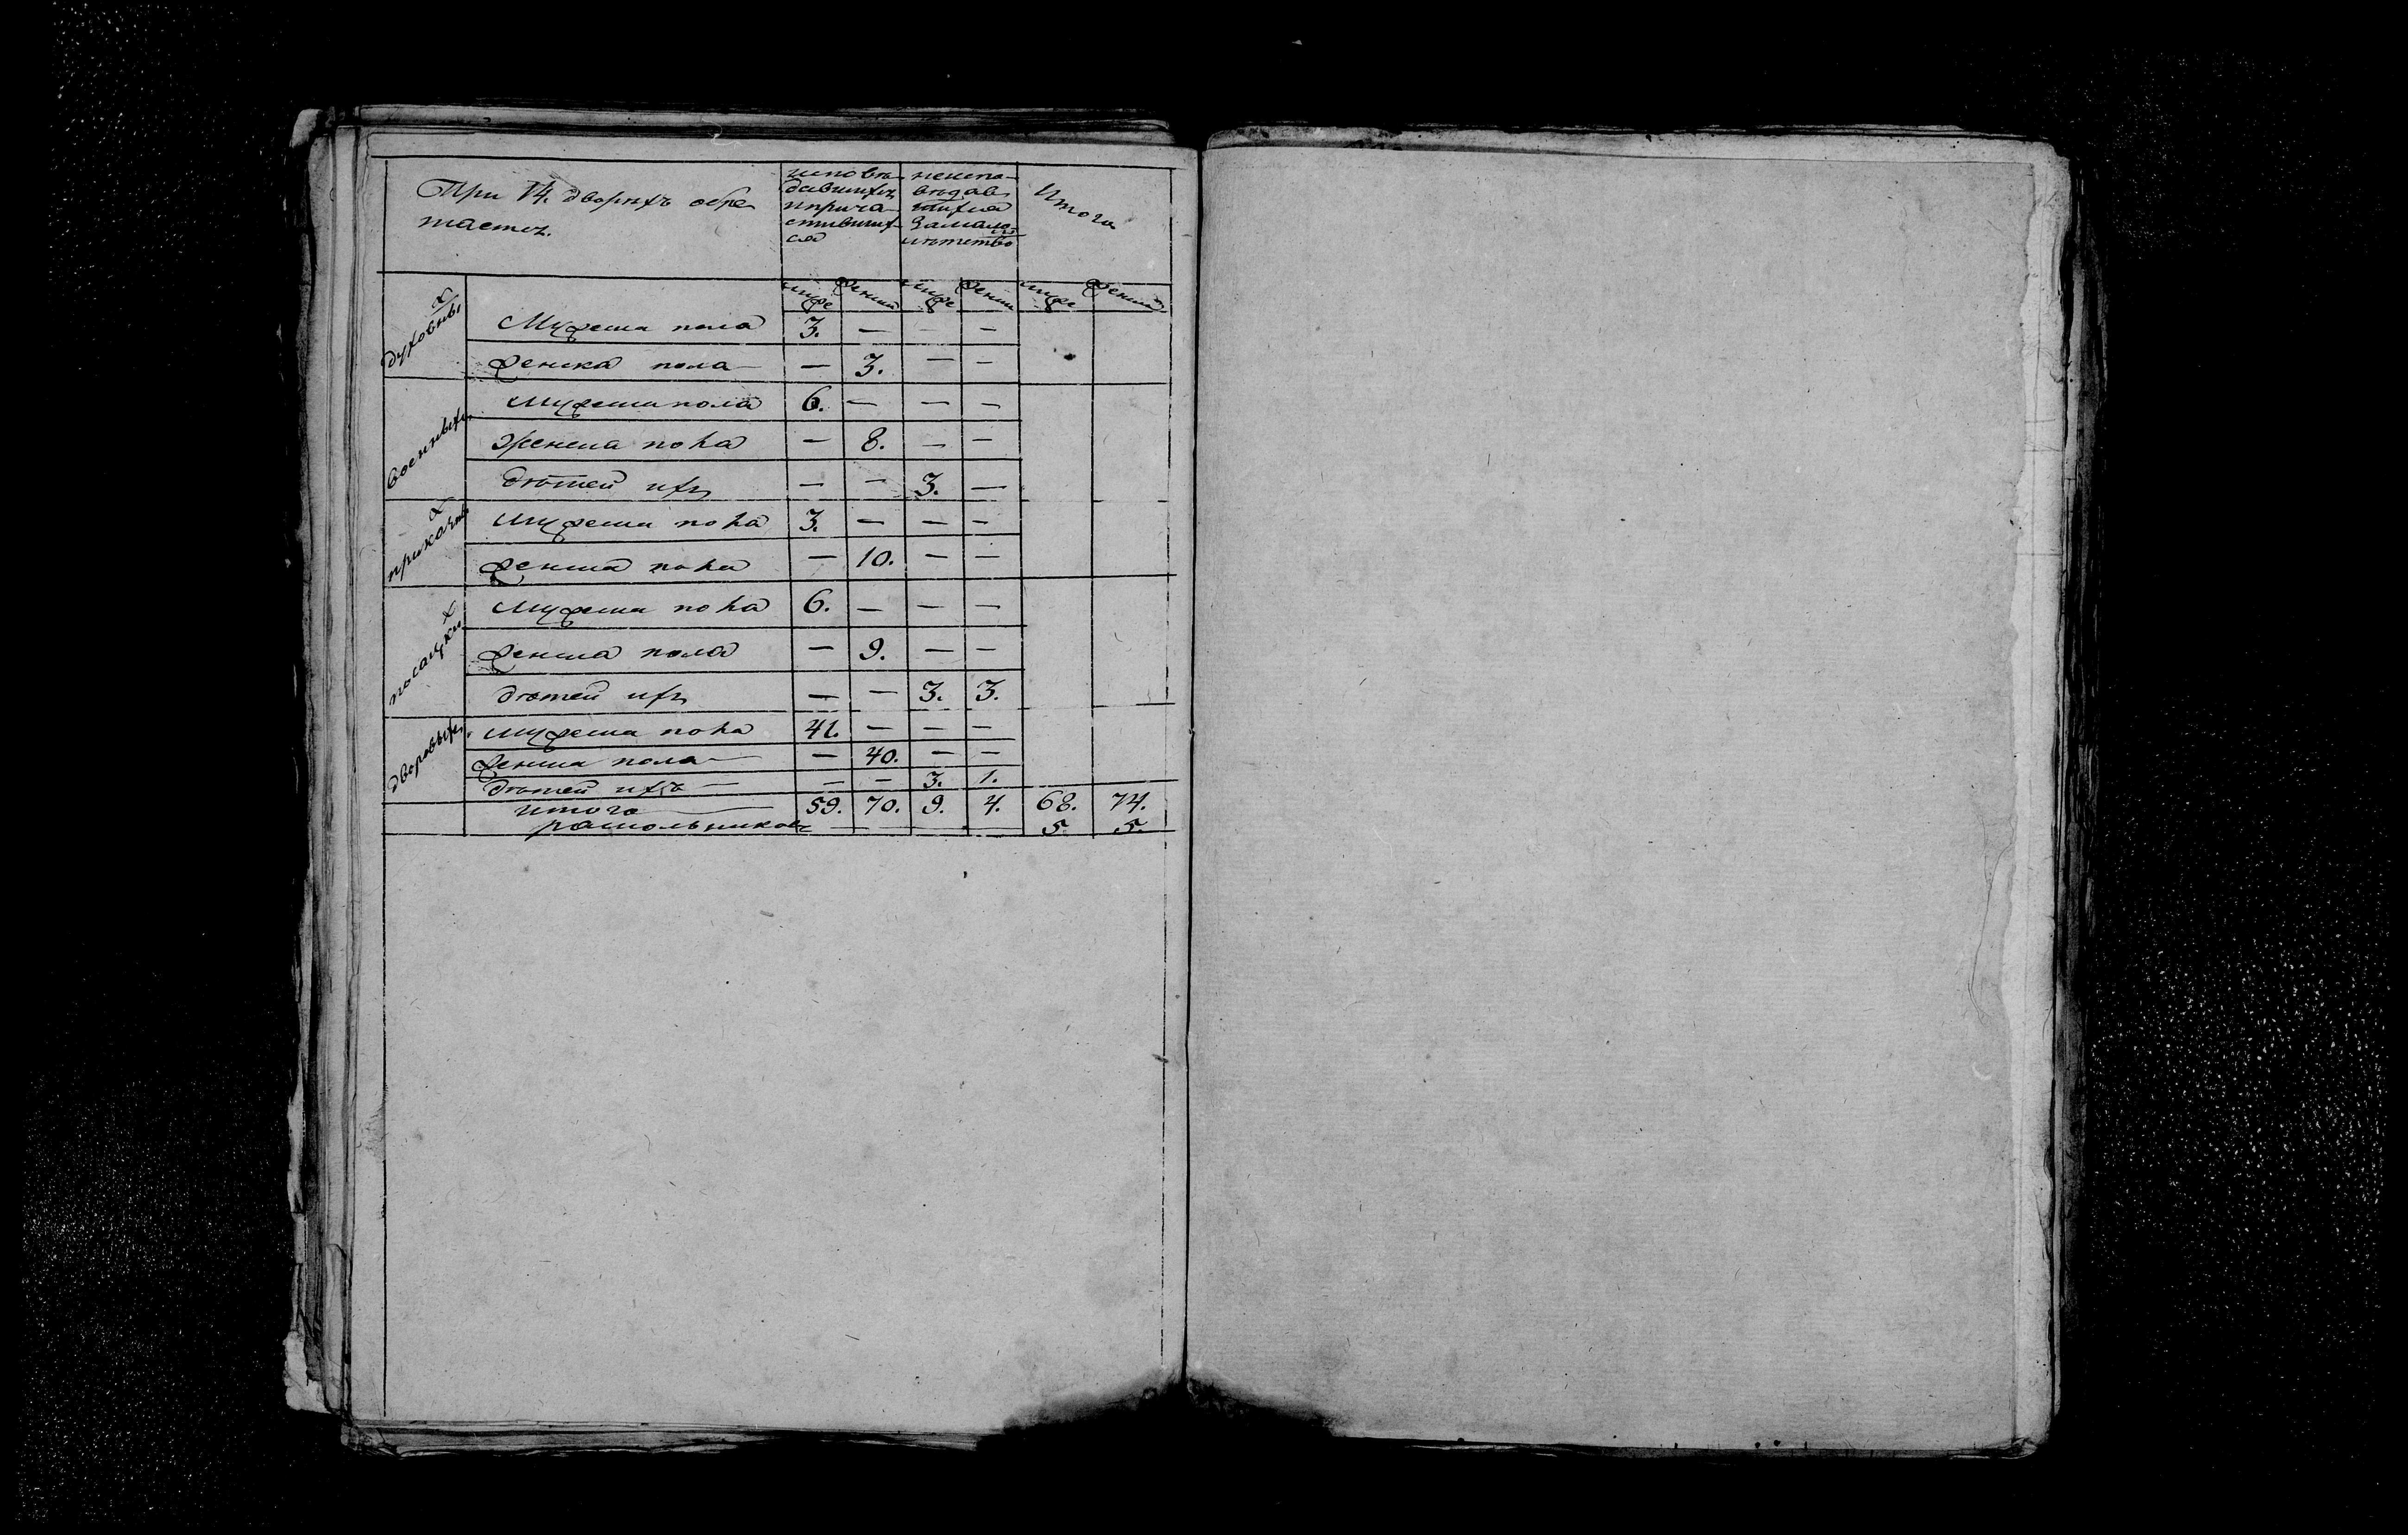 При 14. дворѣхъ обре
таетсѧ.
исповѣ
давшихъ
и прича
стивших
ся
неиспо
вѣдав
шихся
за мало
лѣтство
Итого
муже женши муже женши муже женши
духовныхъ
Мужеска пола 3. — — —
женска пола — 3. — —
военныхъ
мужеска пола 6. — — —
женска пола — 8. — —
дѣтей ихъ — — 3. —
приказныхъ
мужеска пола 3. — — —
женска пола — 10. — —
посацкихъ
мужеска пола 6. — — —
женска пола — 9. — —
дѣтей ихъ — — 3. 3.
дворовыхъ
мужеска пола 41. — — —
женска пола — 40. — —
дѣтей ихъ — — 3. 1.
итого 59. 70. 9. 4. 68. 74.
раскольниковъ — — — — 5. 5.